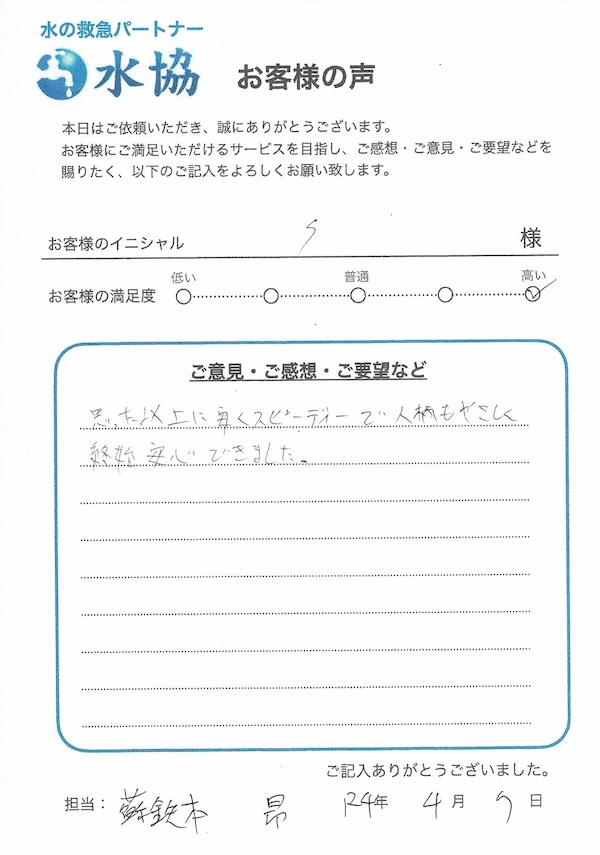 水の救急パートナー
水協 お客様の声
本日はご依頼いただき、誠にありがとうございます。
お客様にご満足いただけるサービスを目指し、ご感想・ご意見・ご要望などを
賜りたく、以下のご記入をよろしくお願い致します。
お客様のイニシャル S 様
低い 普通 高い
お客様の満足度
ご意見・ご感想・ご要望など
思った以上に安くスピーディーで人柄もやさしく
終始安心できました。
ご記入ありがとうございました。
担当： 蘇鉄本 昂 R4年 4月 日